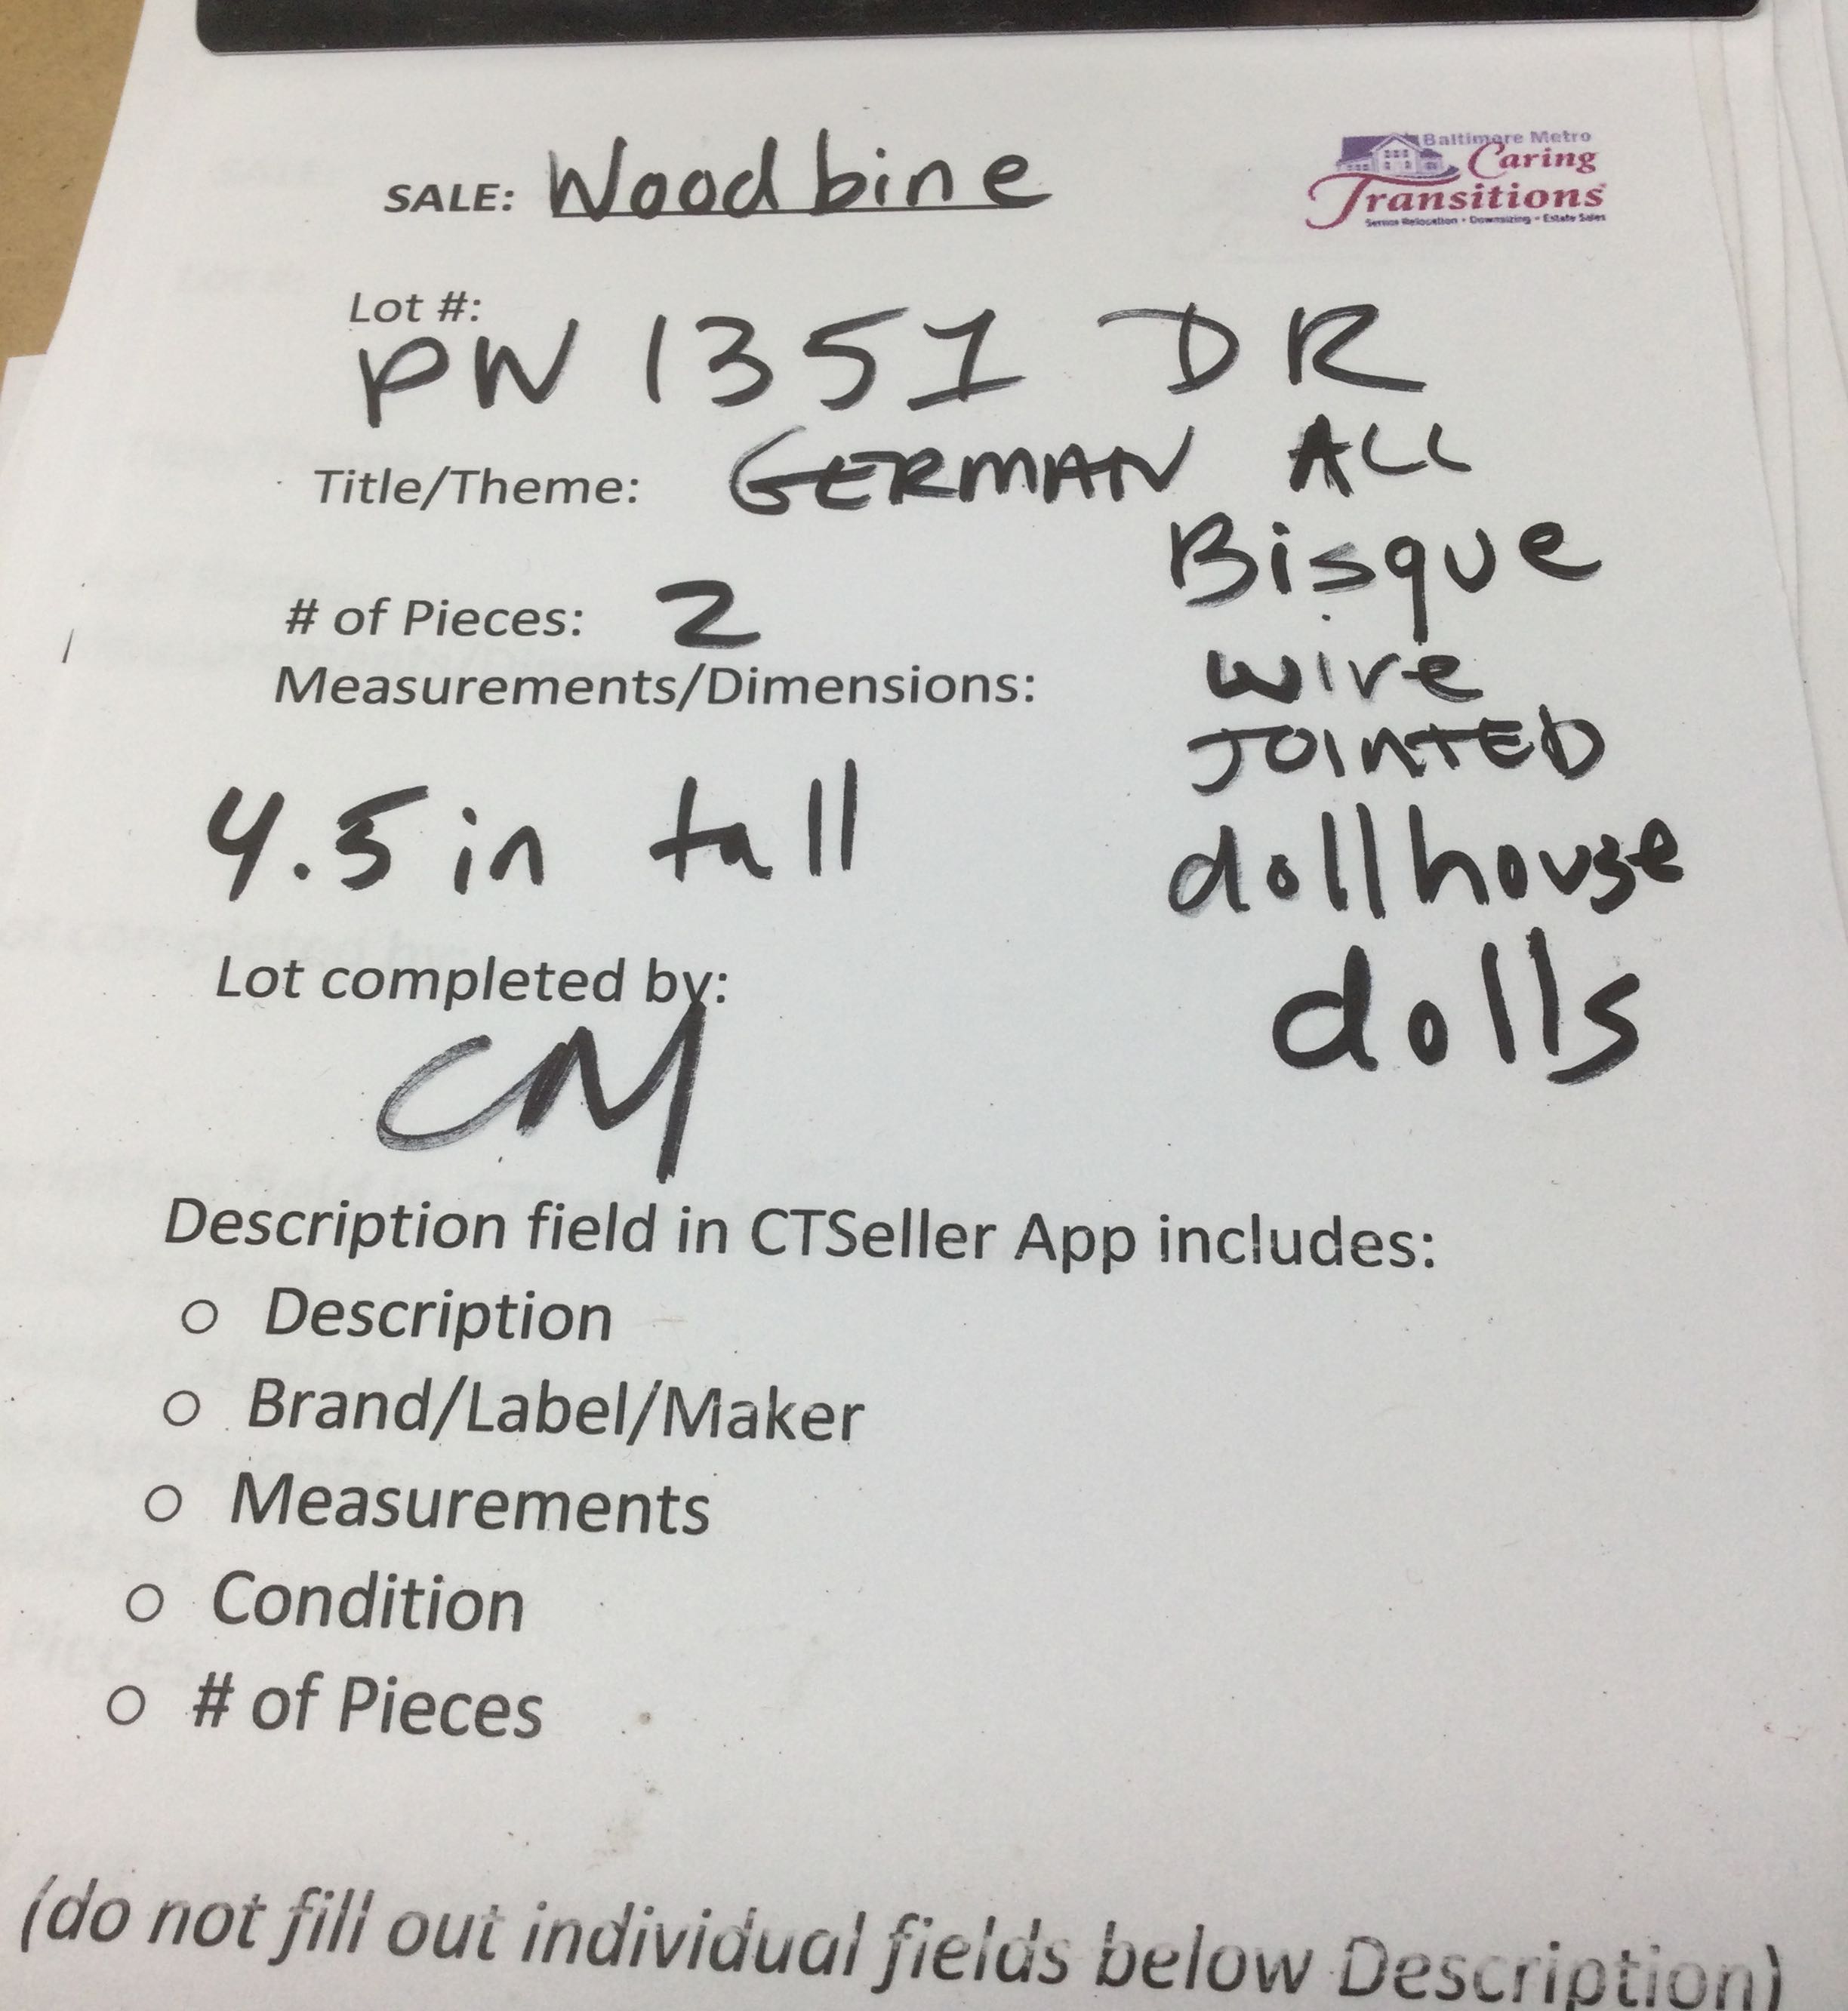 SALE: Woodbine
Baltimore Metro
Caring
Transitions
Senior Relocation • Downsizing • Estate Sales
Lot #:
PW 1351 DR
Title/Theme: GERMAN ALL
Bisque
wire
JOINTED
dollhouse
dolls
# of Pieces: 2
Measurements/Dimensions:
4.5 in tall
Lot completed by:
CM
Description field in CTSeller App includes:
○ Description
○ Brand/Label/Maker
○ Measurements
○ Condition
○ # of Pieces
(do not fill out individual fields below Description)